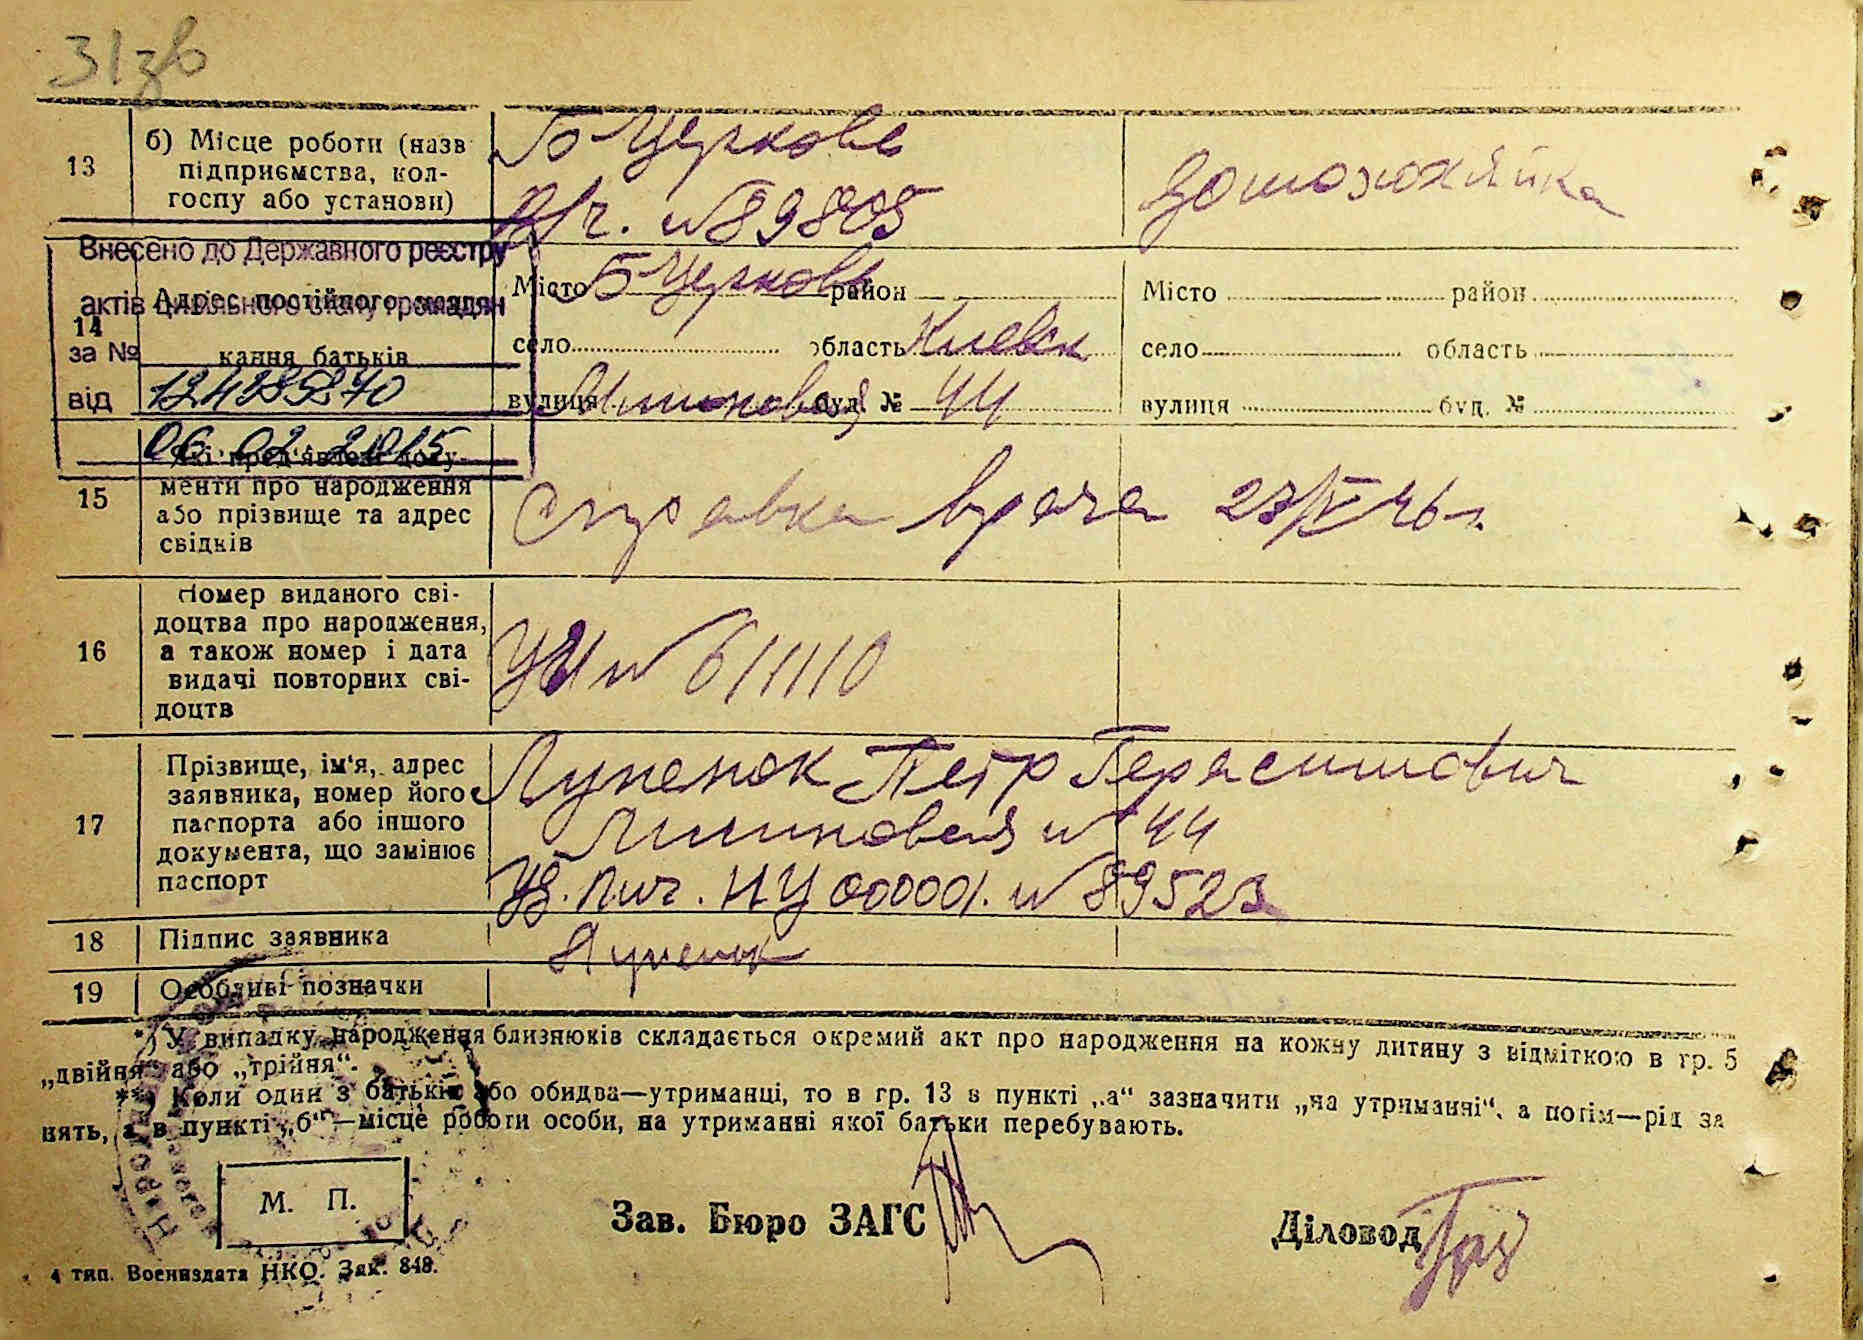 31зв
13
б) Місце роботи (назв
підприємства, кол-
госпу або установи)
Б-Церковь
В/ч. №89805
домохозяйка
Внесено до Державного реєстру
актів цивільного стану громадян
за №
124285870
від
06.02.2015
14
Адрес постійного
кання батьків
Місто Б-Церковь район
село область Киевск
вулиця буд. № 44
Місто район
село область
вулиця буд. №
15
Які пред'явлені доку-
менти про народження
або прізвище та адрес
свідків
Справка врача 23/IV 46 г.
16
Номер виданого сві-
доцтва про народження,
а також номер і дата
видачі повторних сві-
доцтв
№ 611110
17
Прізвище, ім'я, адрес
заявника, номер його
паспорта або іншого
документа, що замінює
паспорт
Лупенок Петр Герасимович
№ 44
Уд. Лич. НУ 000001. № 89523
18
Підпис заявника
Лупенок
19
Особливі позначки
*) У випадку народження близнюків складається окремий акт про народження на кожну дитину з відміткою в гр. 5
„двійня“ або „трійня“.
**) Коли один з батьків або обидва—утриманці, то в гр. 13 в пункті „а“ зазначити „на утриманні“, а потім—рід за
нять, а в пункті „б“—місце роботи особи, на утриманні якої батьки перебувають.
М. П.
Зав. Бюро ЗАГС
Діловод
4 тип. Воениздата НКО. Зак. 848.